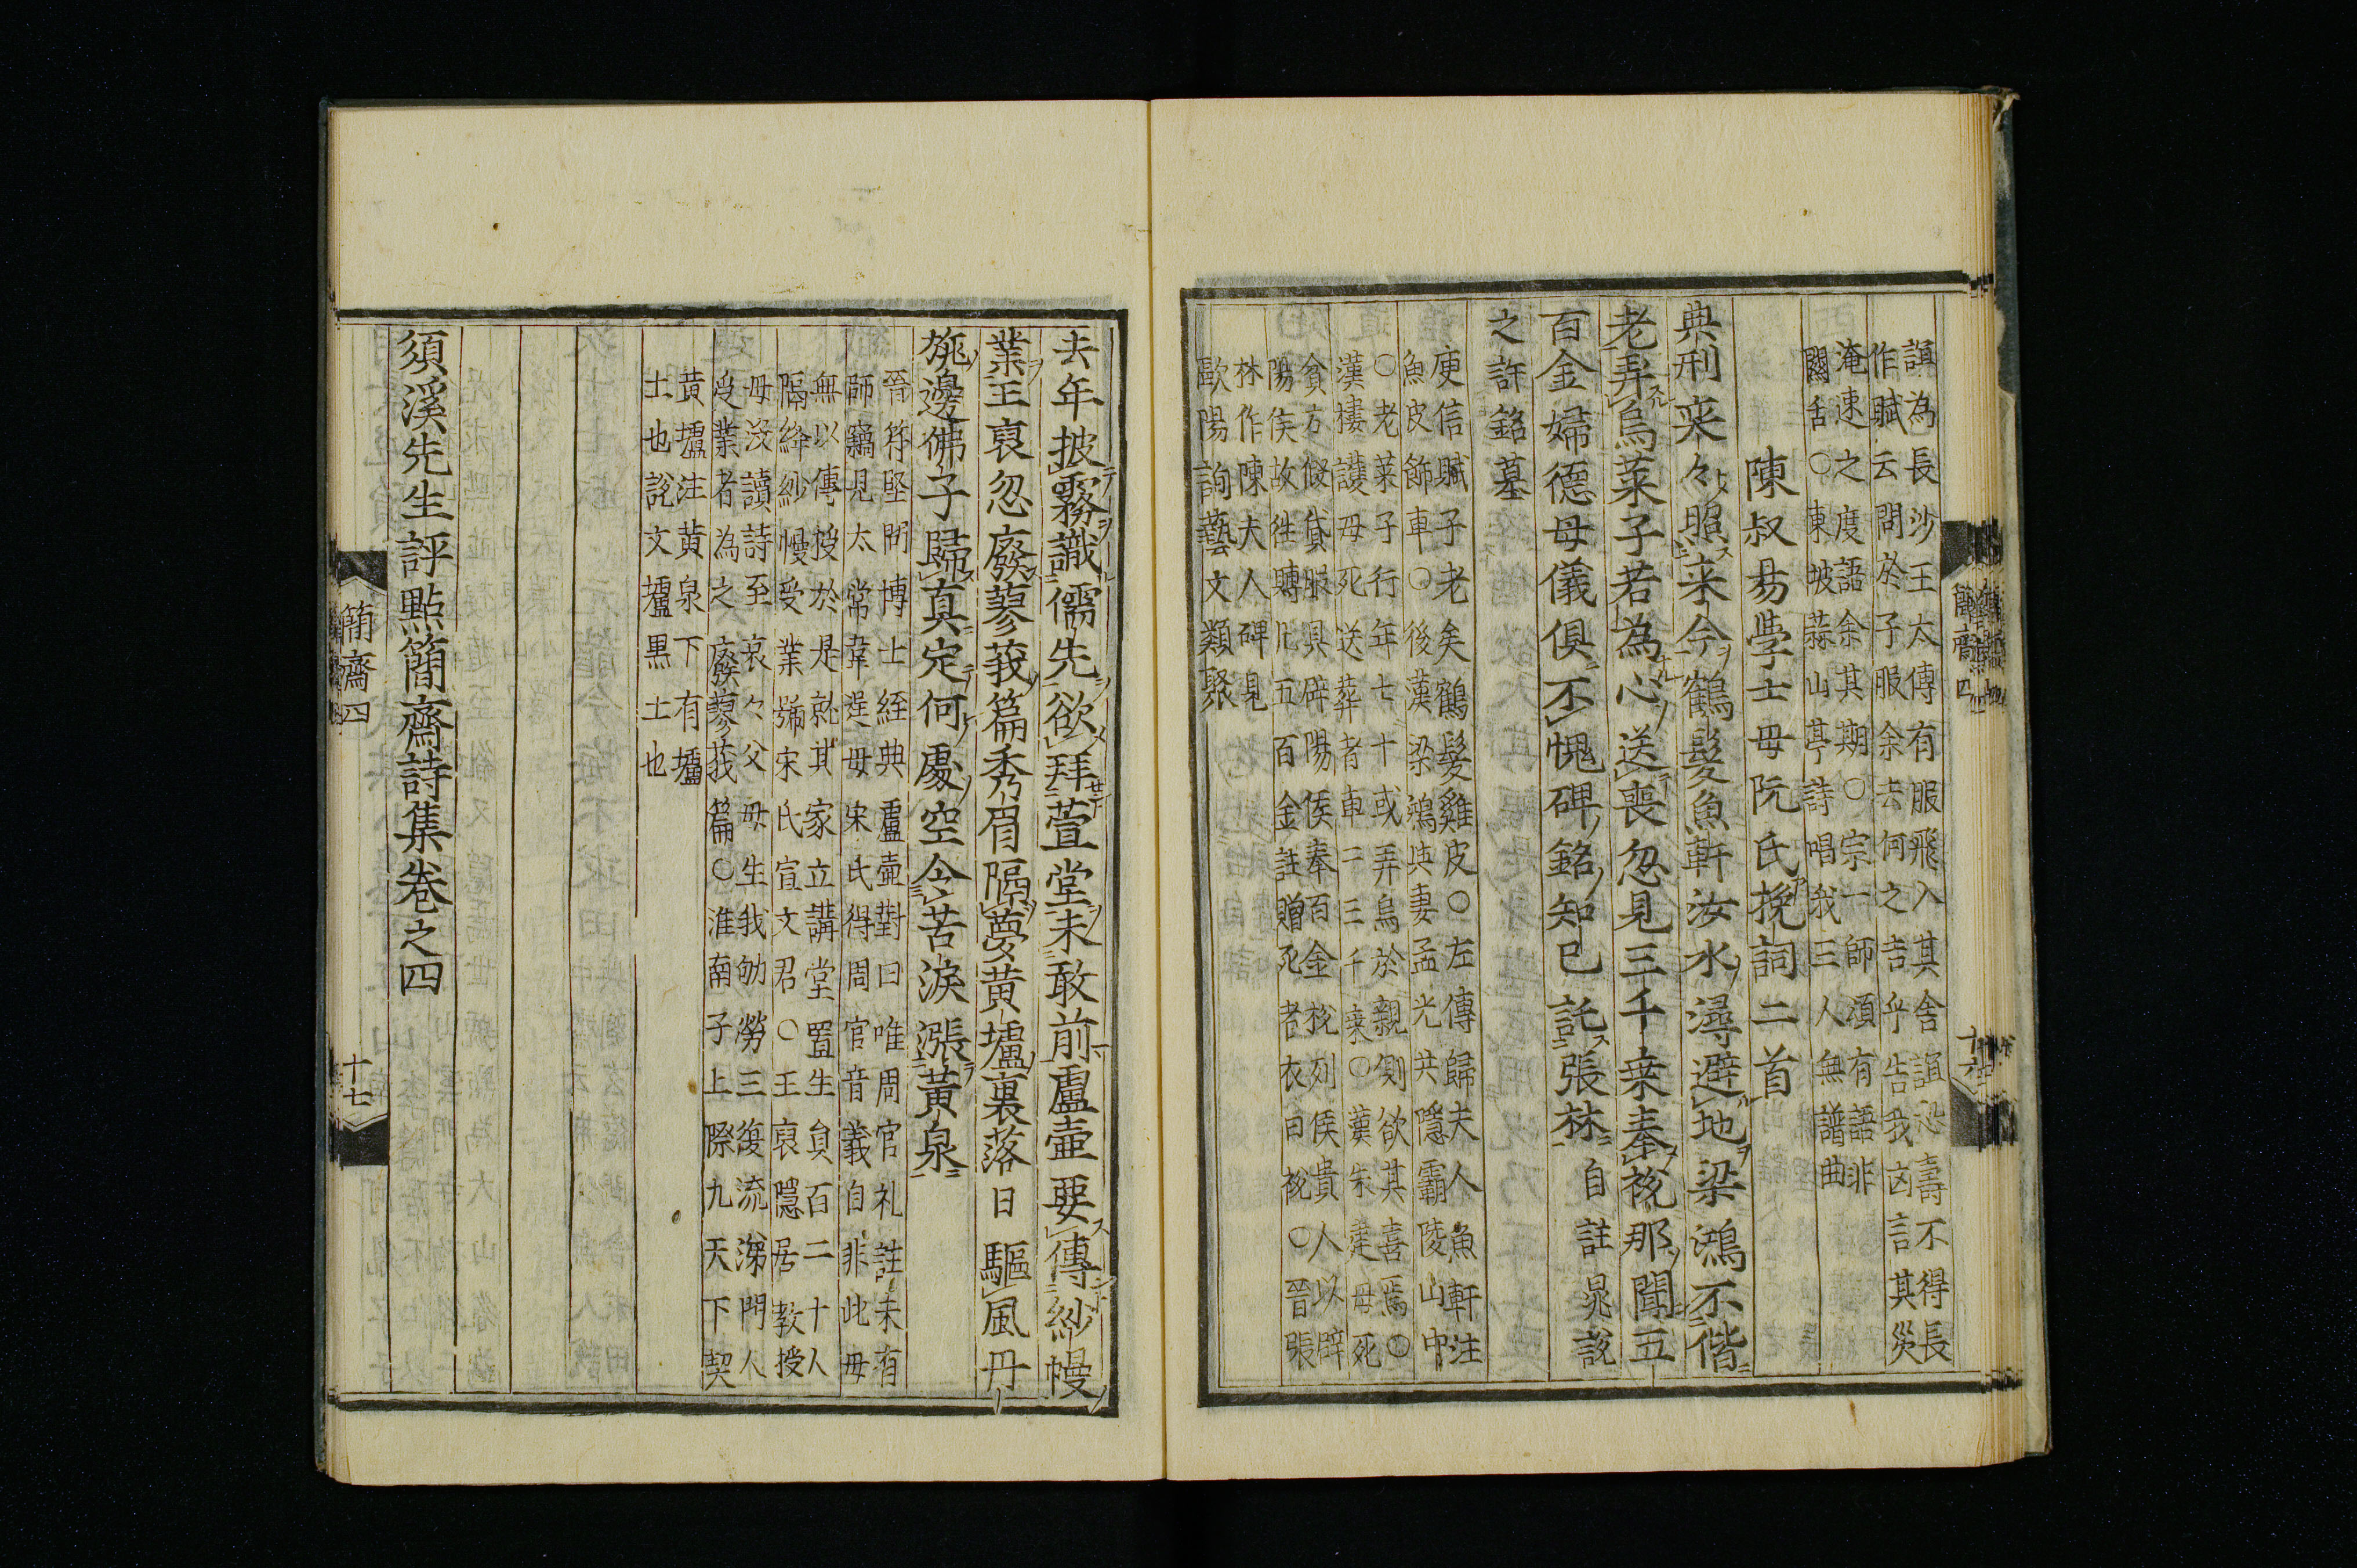 誼為長沙王太傅有服飛入其舍誼恐壽不得長
作賦云問於子服余去何之吉乎告我凶言其災
淹速之度語余其期○宗一師須有語非
關舌○東坡蒜山亭詩唱我三人無譜曲
陳叔易學士母阮氏挽詞二首
典刑奕々照来今鶴髮魚軒汝水潯避地梁鴻不偕
老弄烏萊子若為心送喪忽見三千乘奉祱那聞五
百金婦德母儀俱不愧碑銘知已託張林自註晁說
之許銘墓
庾信賦子老矣鶴髮雞皮○左傳歸夫人魚軒注
魚皮飾車○後漢梁鴻與妻孟光共隱霸陵山中
○老萊子行年七十或弄烏於親側欲其喜焉○
漢樓護母死送葬者車二三千乘○漢朱建母死
貧方假貸服具辟陽侯奉百金祱列侯貴人以辟
陽侯故徃賻凡五百金註贈死者衣曰祱○晉張
林作陳夫人碑見
歐陽詢藝文類聚
簡齋四
十六
去年披霧識儒先欲拜萱堂未敢前盧壷要傳紗幔
業王裒忽廢蓼莪篇秀眉隔夢黃壚裏落日驅風丹
旐邊佛子歸真定何處空令苦淚漲黃泉
晉苻堅閔博士經典盧壷對曰唯周官礼註未有
師竊見太常韋逞母宋氏得周官音義自非此母
無以傳授於是就其家立講堂置生負百二十人
隔絳紗幔受業號宋氏宣文君○王裒隱居教授
母沒讀詩至哀々父母生我劬勞三復流涕門人
受業者為之廢蓼莪篇○淮南子上際九天下契
黃壚注黃泉下有壚
土也說文壚黒土也
須溪先生評點簡齋詩集卷之四
簡齋四
十七